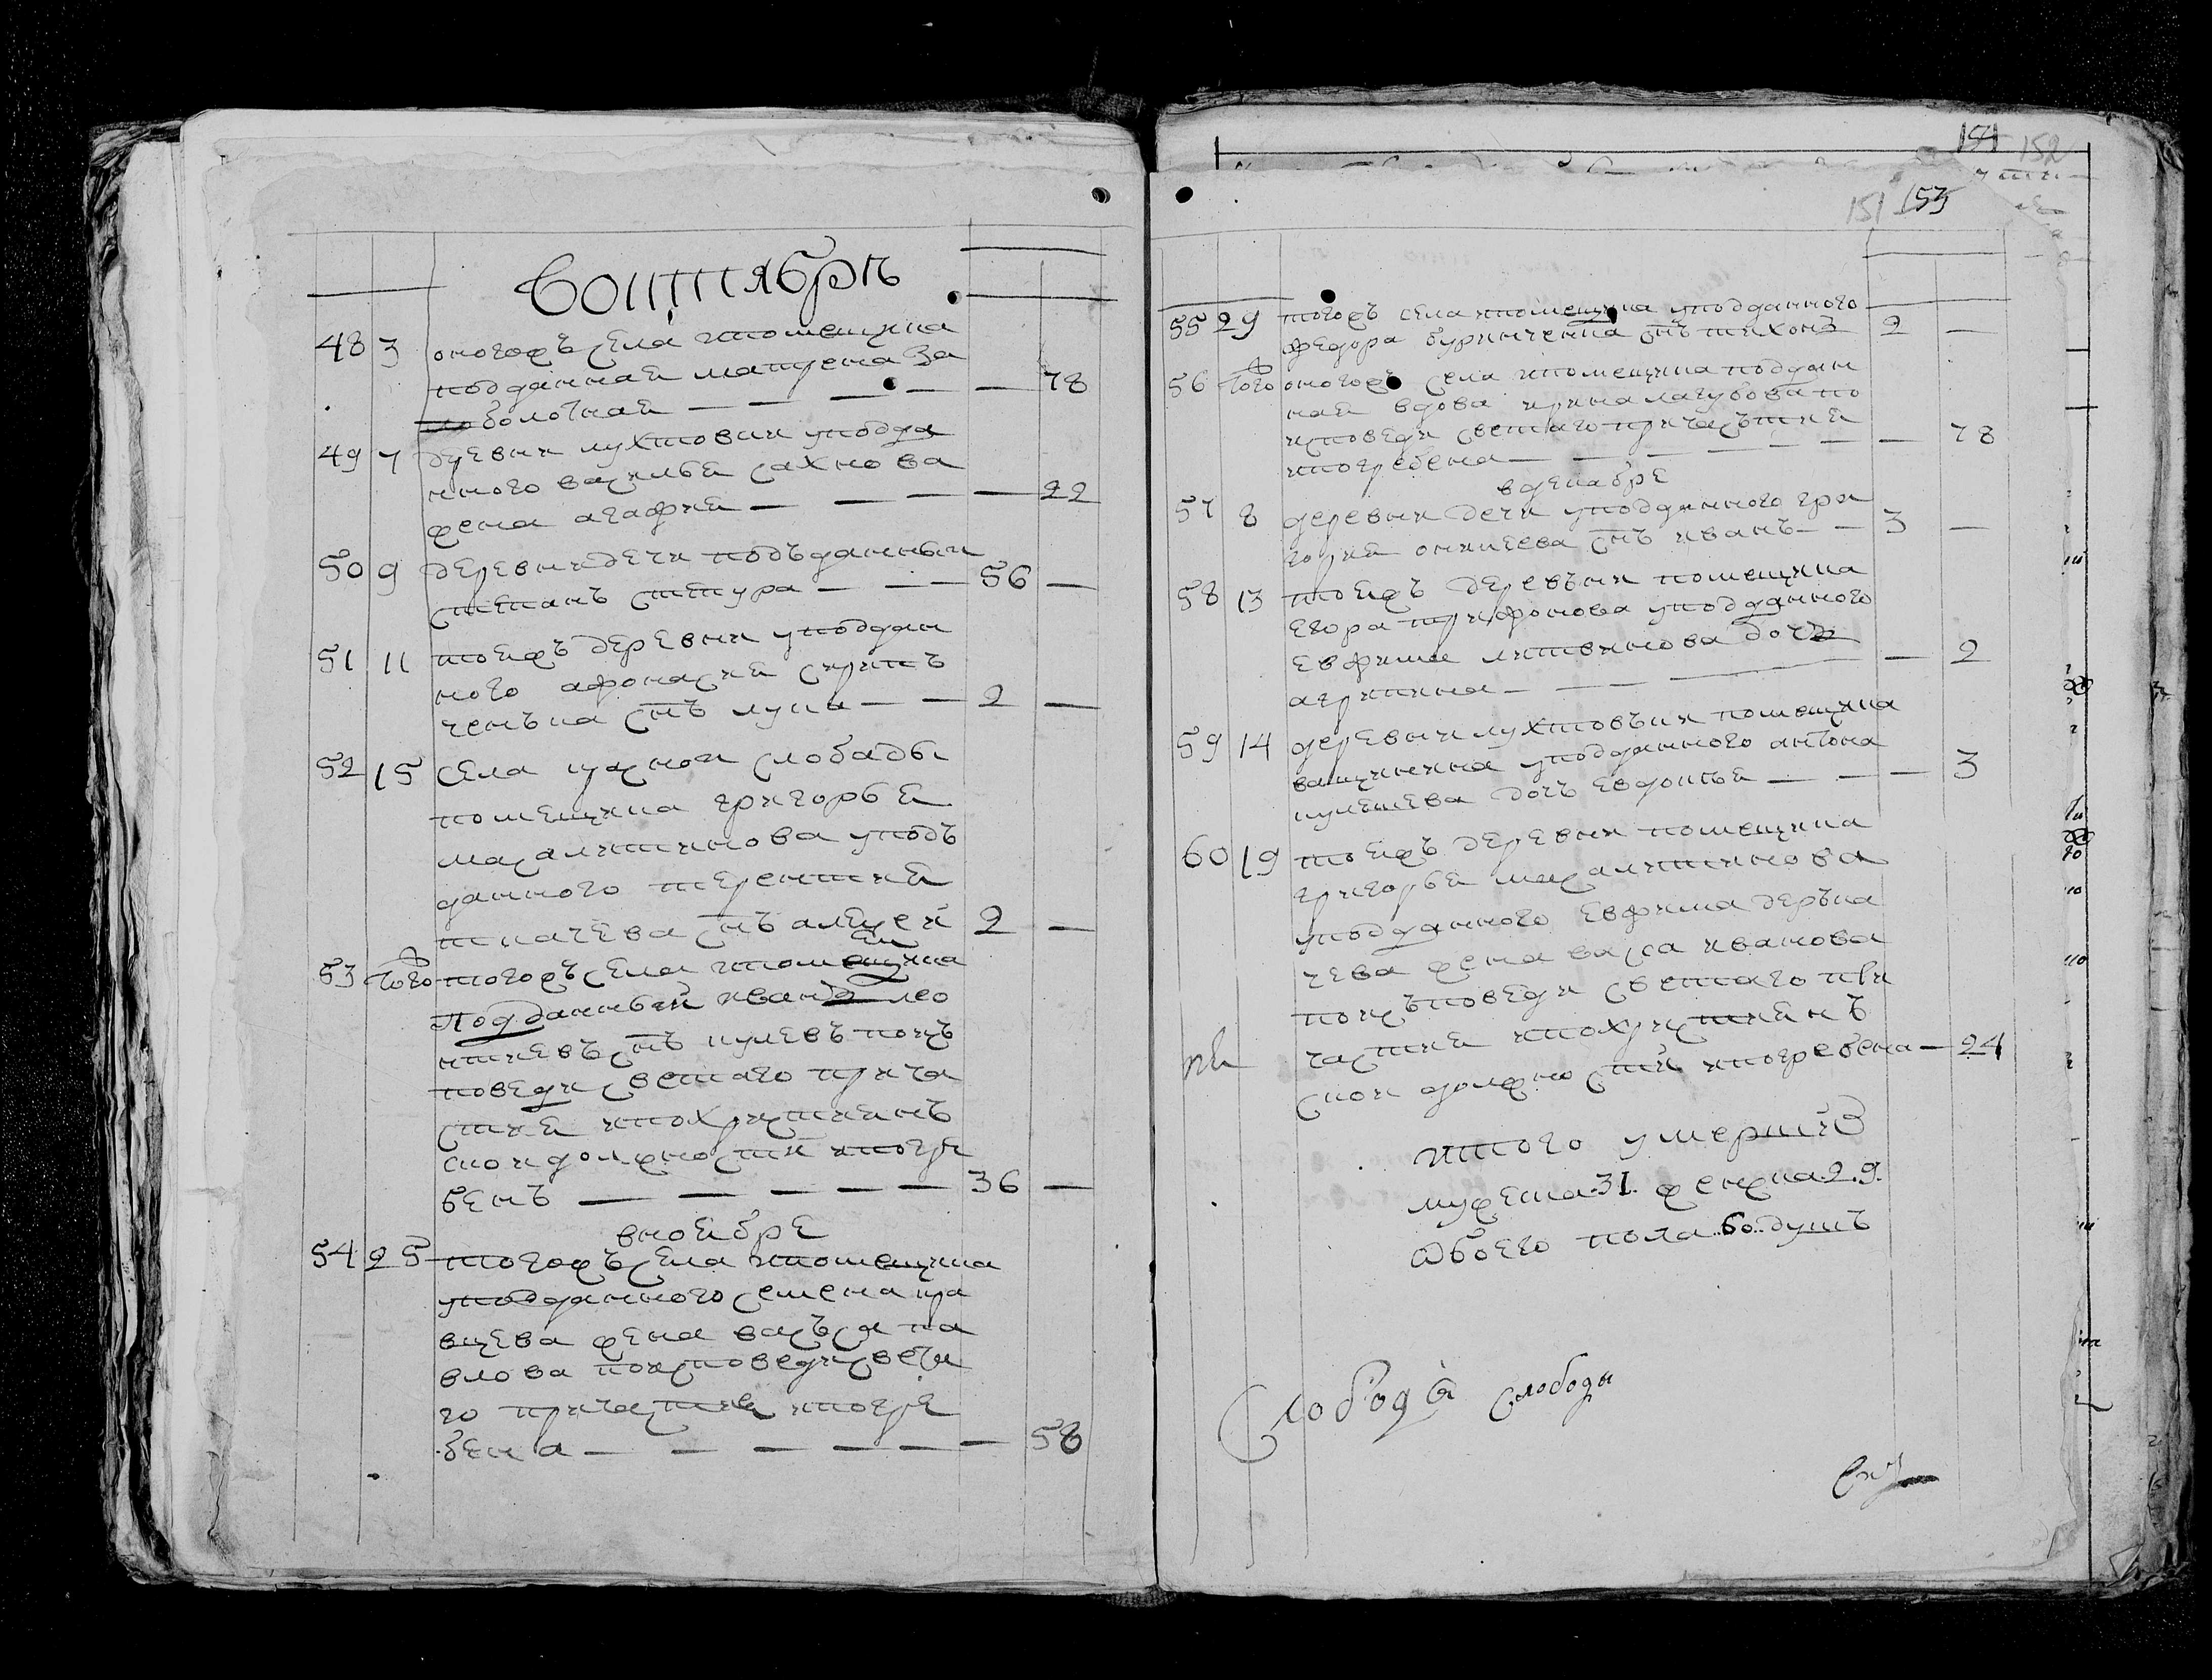 Сонттябрь
48 3 оногожъ села ипомещика
подданная матрена За
болотная — — — — — 78
49 7 деревни лухтовки уподда
нного василья сахнова
жена агафия — — — — 22
50 9 деревни дечи подъданный
степанъ степура — — — 56 —
51 11 тоежъ деревни уподдан
ного афонасия скрип
ченъка снъ лука — — 2 —
52 15 села красной слабады
помещика григорья
подъ
данного терентия
ткачева снъ алеѯей 2 —
53 того тогожъ села ипомещика
Подданный иванъ лео
нтиевъ снъ кулевъ поис
поведи светаго прича
стия ипохристиянъ
ской должности ипогре
бенъ — — — — — 36 —
вноябре
54 25 тогожъ села ипомещика
уподданного семена кра
вцева жена васъса па
влова поисповеди света
го причастия ипогре
бена — — — — — — 58
151 152
151 153
55 29 тогожъ села ипомещика уподданного
федора снъ тихонъ 2 —
56 того оногожъ села ипомещика поддан
ная вдова ирина лагубова по
исповеди светаго причастъия
ипогребена — — — — — — 78
вдекабре
57 8 деревни дечи уподданного гри
гория оникеева снъ иванъ — — 3 —
58 13 тоежъ деревъни помещика
егора трифонова уподданного
евфима литвинова дочъ
агрипина — — — — 2
59 14 деревни лухтовъки помещика
уподданного антона
кулешева дочъ евдокья — — — 3
60 19 тоежъ деревни помещика
григорья
уподданного евфима деръка
чева жена васса иванова
поисъповеди светаго при
частия ипохристиянъ
ской должности ипогребена — 24
итого умершихъ
мужеска 31. женска 29.
обоего пола 60 душъ
Слобода слободы